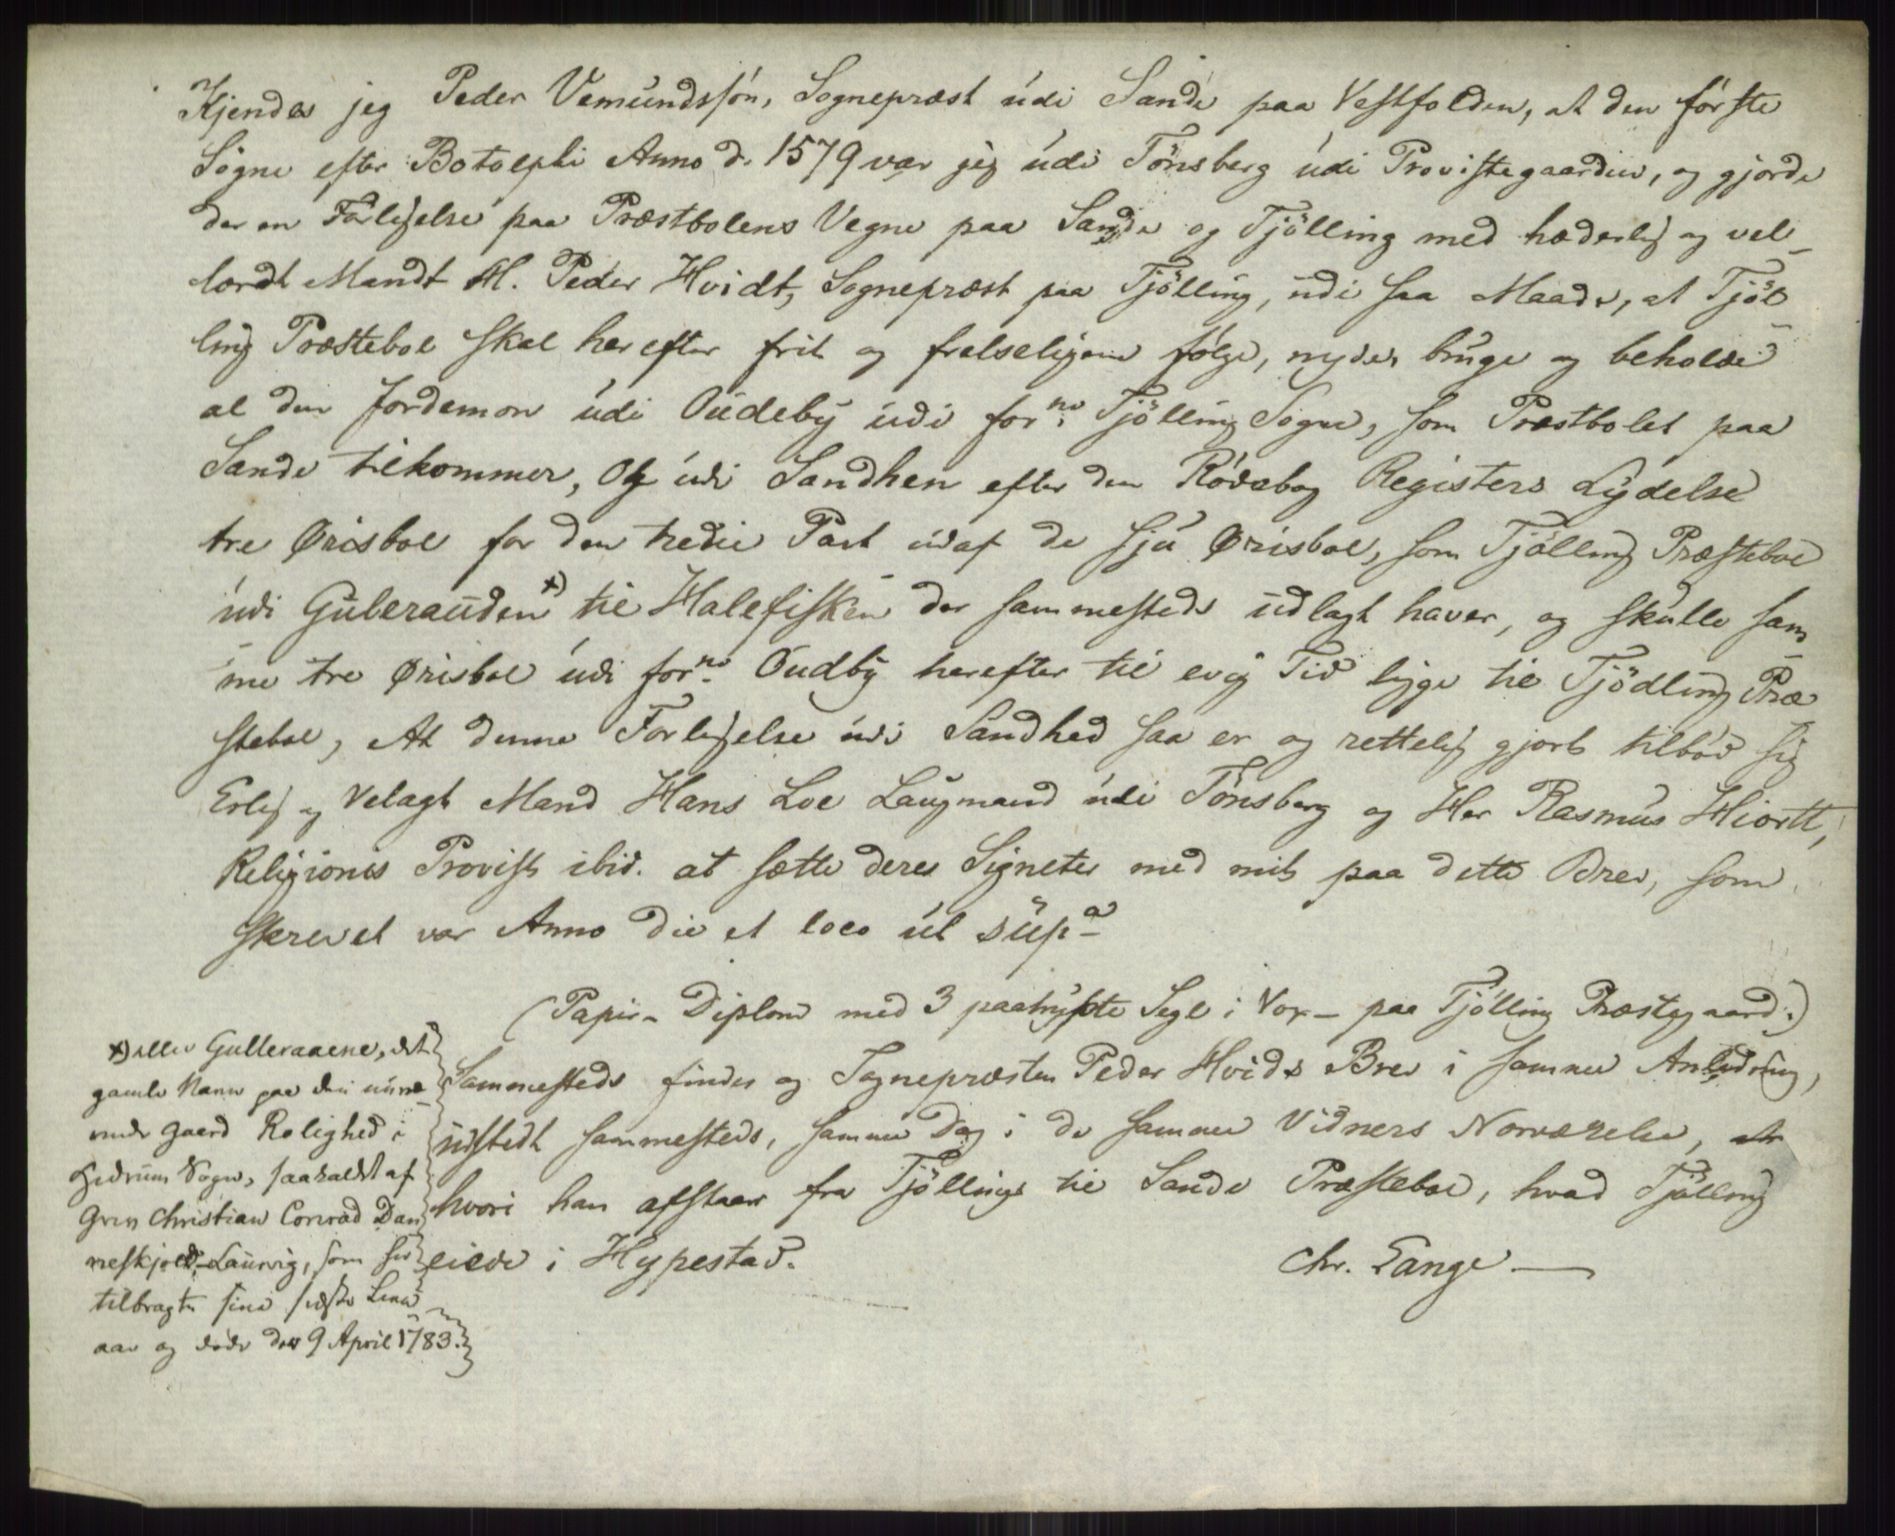 Kjendes jeg Peder Vemundssön, Sognepræst udi Sande paa Vestfolden, at den förste
Sögne efter Botolphi Anno d. 1579 var jeg udi Tönsberg udi Provistegaarden, og gjorde
der en Forligelse paa Præstbolens Vegne paa Sande og Tjölling med hæderlig og vel-
lærdt Mandt H. Peder Hvidt, Sognepræst paa Tjölling, udi saa Maade, at Tjöl-
ling Præstebol skal herefter frit og frelseligen fölge, nyde, bruge og beholde
al den Jordemon udi Oudeby udi forne Tjölling Sogne, som Præstbolet paa
Sande tilkommer, Og udi Sandhen efter den Rödebog Registers Lydelse
tre Ørisbol for den tredie Part udaf de sju Ørisbol, som Tjölling Præstebol
udi Gulerauden x) til Halefisken der sammesteds udlagt haver, og skulle sam-
me tre Ørisbol udi forne Oudby herefter til evig Tid ligge til Tjödling Præ-
stebol, At denne Forligelse udi Sandhed saa er og rettelig gjort tilböd sig
Erlig og Velagt Mand Hans Loe Laugmand udi Tönsberg og Her Rasmus Hiortt,
Religionis Provist ibid. at sætte deres Signeter med mit paa dette Brev, som
skrevet var Anno die et loco ut supa
(Papir-Diplom med 3 paatrykte Segl i Vox - paa Tjölling Præstegaard.)
Sammesteds findes og Sognepræsten Peder Hvids Brev i samme Anledning,
udstedt sammesteds, samme Dag i de samme Vidners Nærværelse,
hvori han afstaaer fra Tjöllings til Sande Præstebol, hvad Tjölling
eiede i Hypestad.
Chr. Lange
x) eller Gulleraaene, det
gamle Navn paa den nuvæ-
rende Gaard Rolighed i
Hedrum Sogn, saakaldt af
Grev Christian Conrad Dan-
neskjold-Laurvig, som her
tilbragte sine sidste Leve-
aar og döde den 9 April 1783.